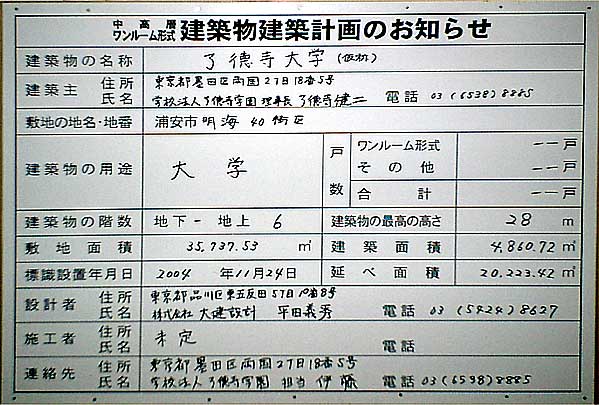 中高層
ワンルーム形式 建築物建築計画のお知らせ
建築物の名称 了徳寺大学(仮称)
建築主 住所 東京都墨田区両国2丁目18番5号
氏名 学校法人了徳寺学園 理事長 了徳寺健二 電話 03(6538)8885
敷地の地名・地番 浦安市明海 40街区
建築物の用途 大学
戸数 ワンルーム形式 ーー戸
その他 ーー戸
合計 ーー戸
建築物の階数 地下 - 地上 6 建築物の最高の高さ 28 m
敷地面積 35,737.53 ㎡ 建築面積 4,860.72 ㎡
標識設置年月日 2004 年11月24日 延べ面積 20,223.42 ㎡
設計者 住所 東京都品川区東五反田5丁目10番8号
氏名 株式会社 大建設計 平田義秀 電話 03(5424)8627
施工者 住所 氏名 未定 電話
連絡先 住所 東京都墨田区両国2丁目18番5号
氏名 学校法人了徳寺学園 担当 伊藤 電話 03(6598)8885